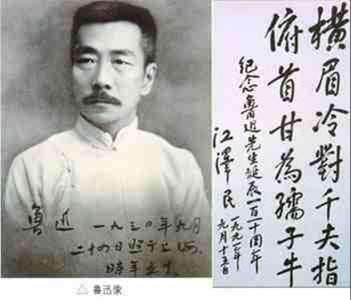 魯迅 一九三〇年九月
二十四日照于上海,
時年五十
△ 鲁迅像
橫眉冷對千夫指
俯首甘為孺子牛
纪念魯迅先生誕辰一百一十周年
江澤民
一九九一年
九月十五日